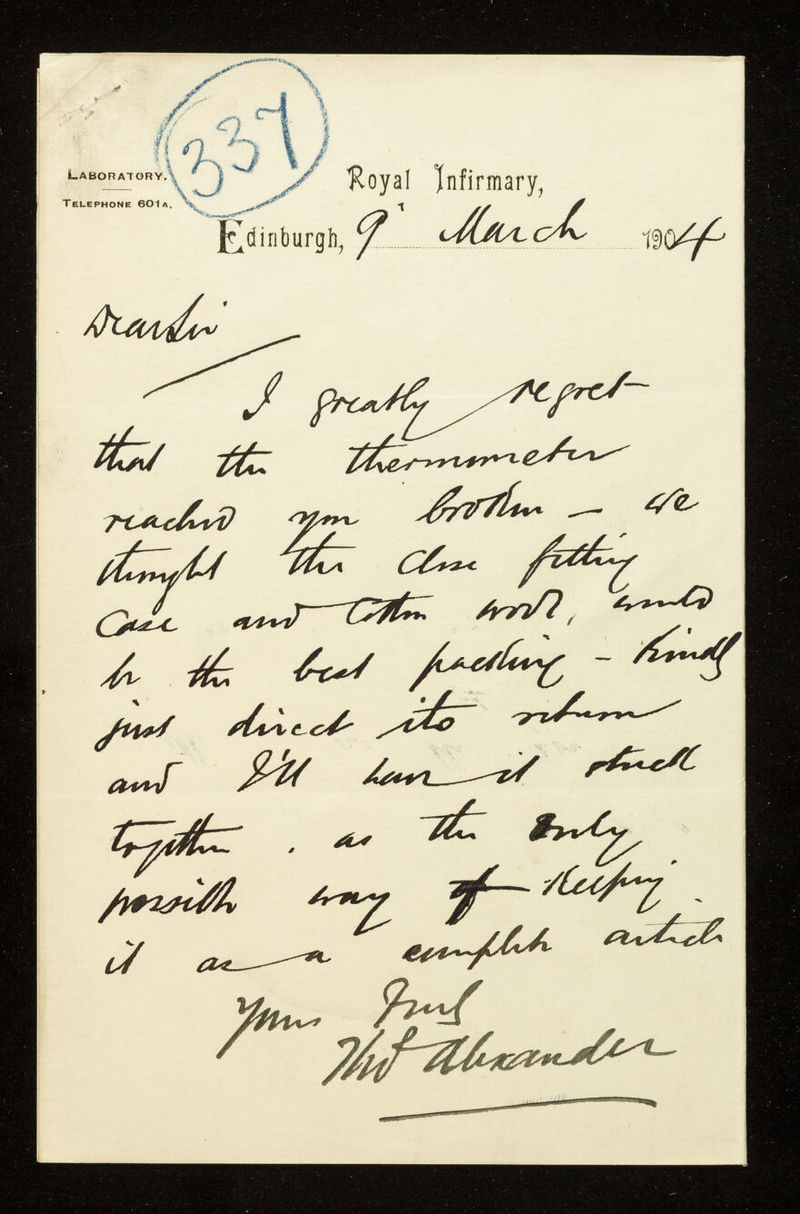 337
LABORATORY.
TELEPHONE 601A.
Royal Infirmary,
Edinburgh, 9' March 1904
Dear Sir
I greatly regret
that the thermometer
reached you broken – we
thought the close fitting
case and cotton wool, would
be the best packing – Kindly
just direct its return
and I'll have it stuck
together. as the only
possible way of Keeping
it as a complete article
Yours Truly
Thos Alexander